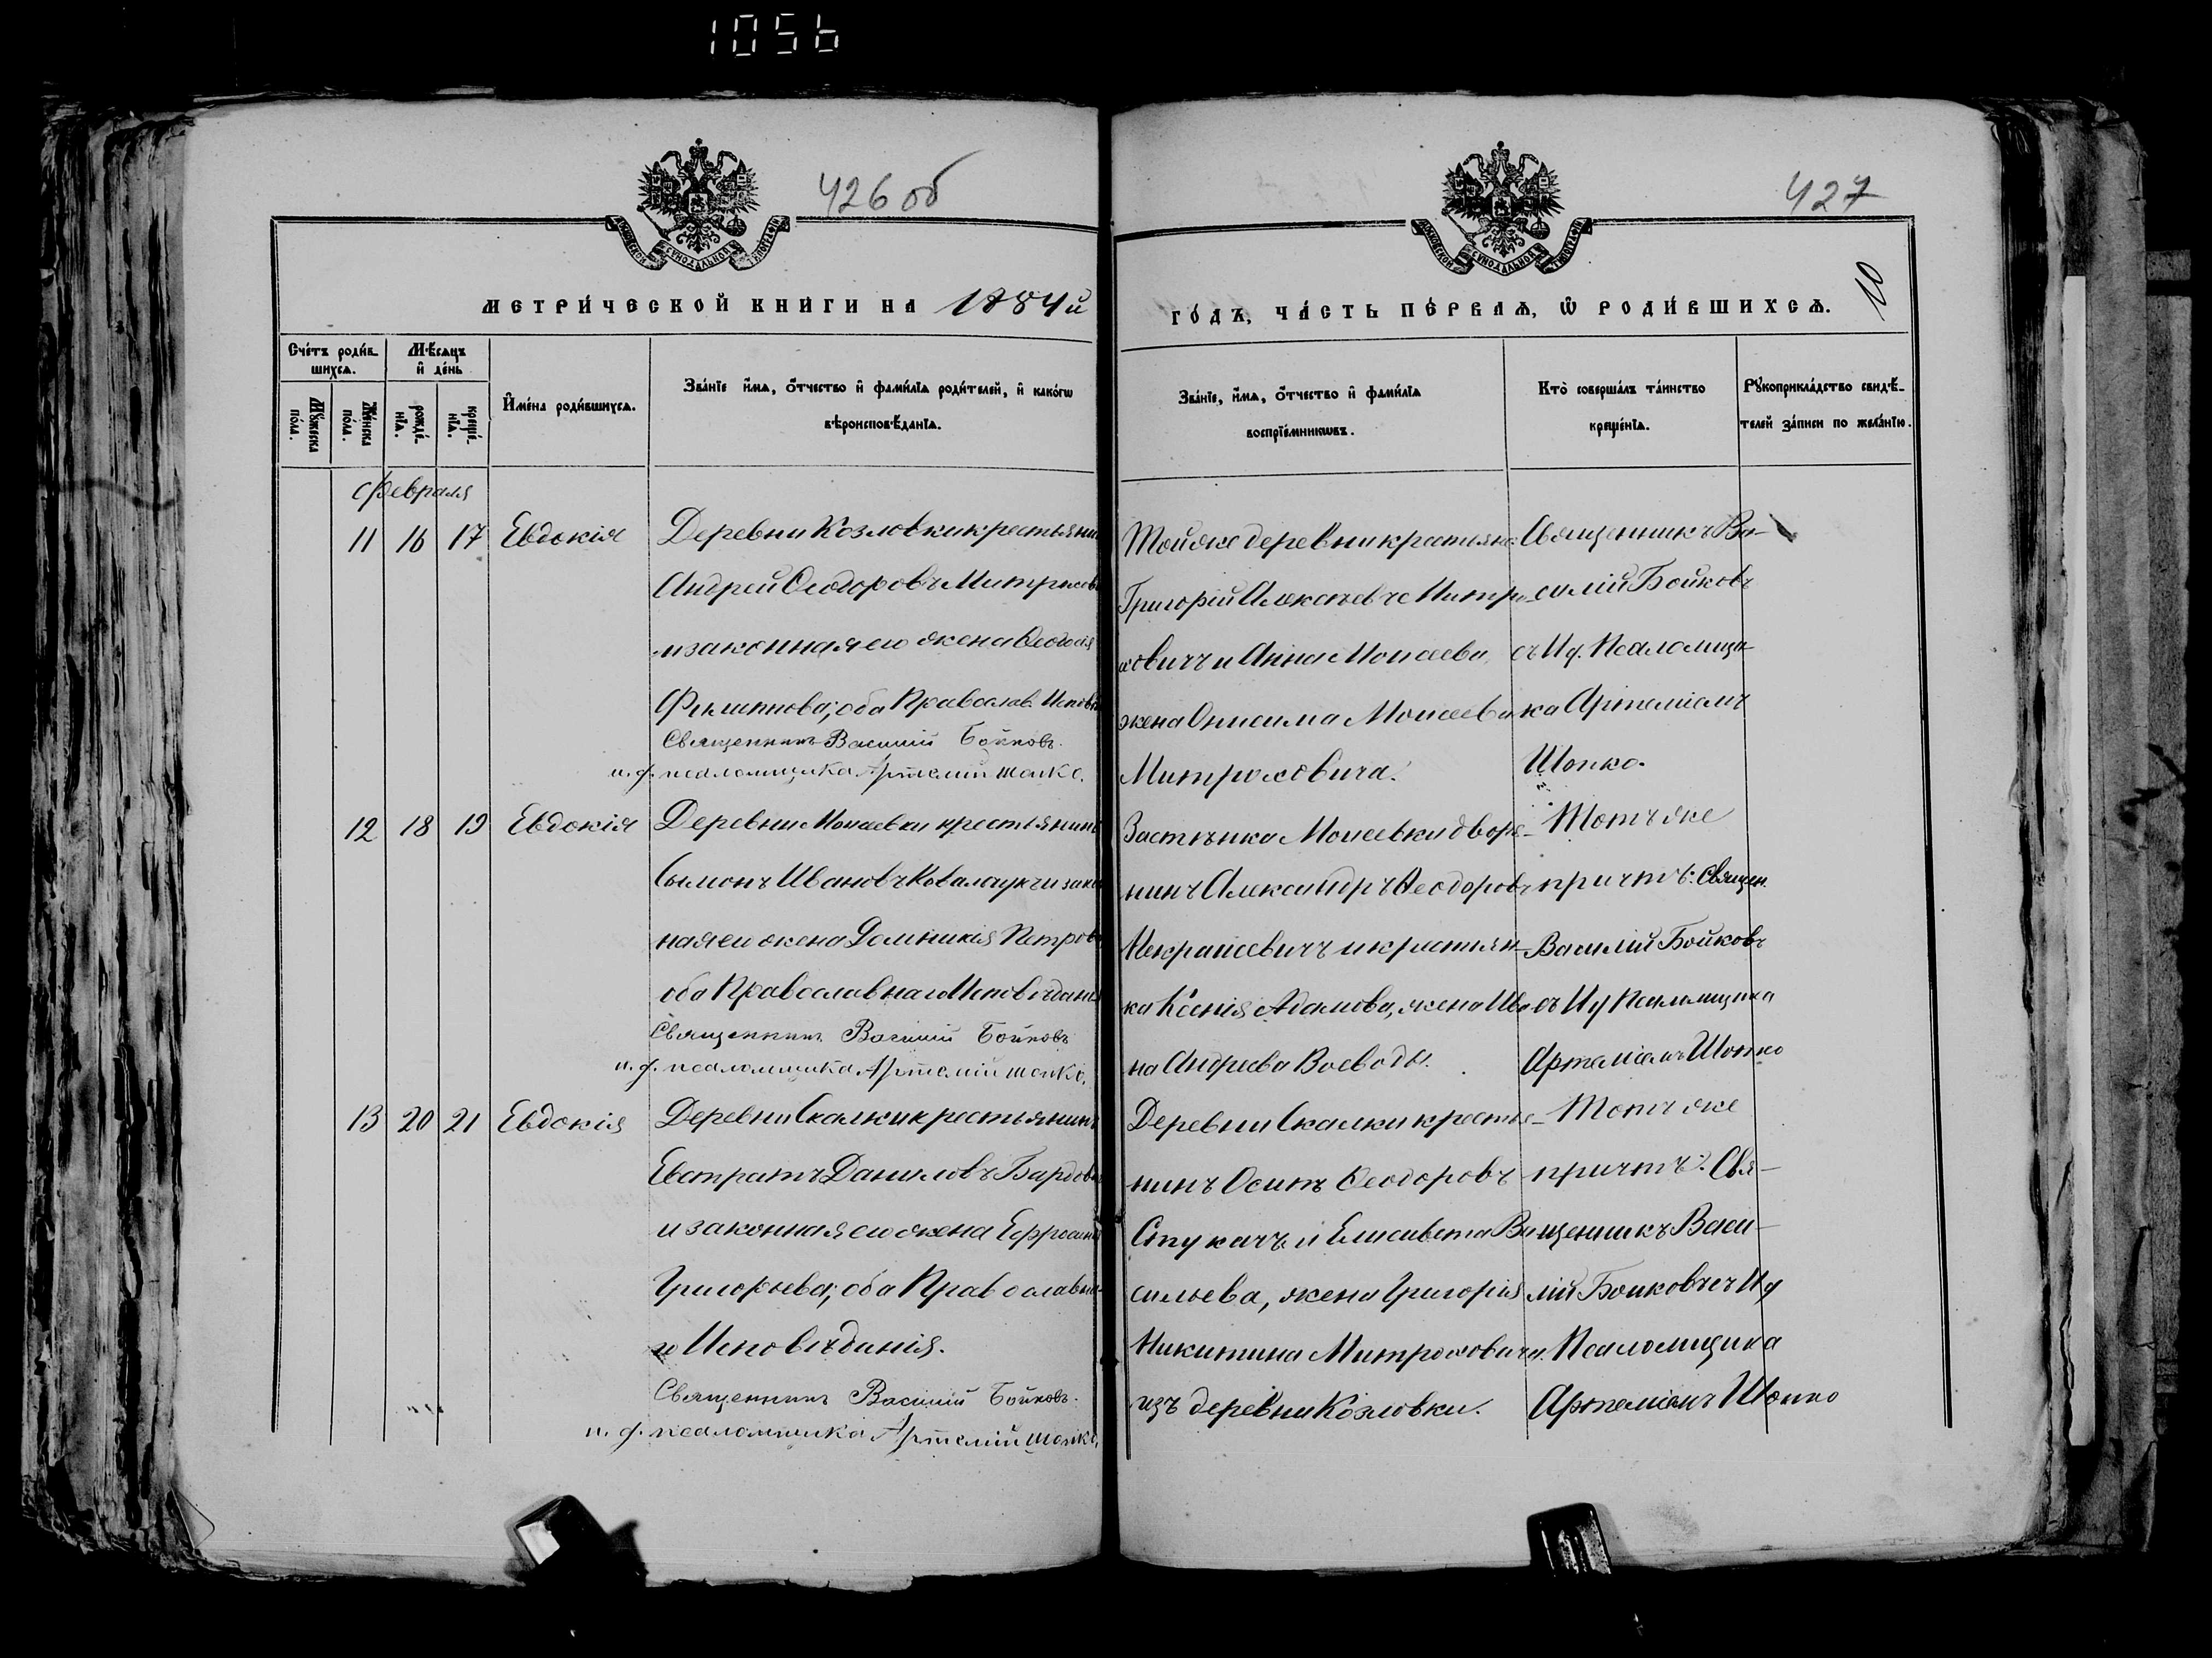 1056
426 об
427
10
МЕТРИ́ЧЕСКОЙ КНИ́ГИ НА 1884 й
ГО́ДЪ, ЧА́СТЬ ПЕ́РВАѦ, Ѽ РОДИ́ВШИХСѦ.
Сче́тъ роди́в-
шихсѧ.
Мѣ́сѧцъ
и҆ де́нь
Мꙋ́жеска
по́ла.
Же́нска
по́ла.
рожде́-
нїѧ.
креще́-
нїѧ.
И҆мена̀ роди́вшихсѧ.
Зва́нїе и҆́мѧ, ѻ҆́тчество и҆ фами́лїѧ роди́телей, и҆ како́гѡ
вѣроисповѣ́данїѧ.
Зва́нїе, и҆́мѧ, ѻ҆́тчество и҆ фами́лїѧ
воспрїе́мникѡвъ.
Кто̀ соверша́лъ та́инство
креще́нїѧ.
Рꙋкоприкла́дство свидѣ́-
телей за́писи по жела́нїю.
Февраля
11 16 17 Евдокія
Деревни Козловки крестьянинъ
Андрей Ѳеодоровъ Митрохов
и законная его жена Ѳеодосія
Филиппова; оба Православ. Исповѣ
Священникъ Василій Бойковъ.
и. ф. псаломщика Артемій Шопко.
Той же деревни крестьяне:
Григорій Алексѣевъ Митро-
ховичъ и Анна Моисеева,
жена Онисима Моисеева
Митроховича.
Священникъ Ва-
силій Бойковъ
съ И ф. Псаломщи-
ка Артеміемъ
Шопко.
12 18 19 Евдокія
Деревни Моисеевки крестьянинъ
Сымонъ Ивановъ Ковальчукъ и закон
ная его жена Домникія Петров
оба Православнаго Исповѣданія
Священникъ Василій Бойковъ
и. ф. псаломщика Артемій Шопко.
Застѣнка Моисеевки дворя-
нинъ Александръ Ѳеодоровъ
Некрашевичъ и крестьян-
ка Ксенія Адамова, жена Ива
на Андреева Воеводы.
Тотъ же
причтъ: Священ.
Василій Бойковъ
съ И ф Псаломщика
Артеміемъ Шопко
13 20 21 Евдокія
Деревни Скалки крестьянинъ
Евстратъ Даниловъ Бардов
и законная его жена Ефросинія
Григорьева; оба Православна-
го Исповѣданія.
Священникъ Василій Бойковъ.
и. ф. псаломщика Артемій Шопко.
Деревни Скалки крестья-
нинъ Осипъ Ѳеодоровъ
Стукачъ и Елисавета Ва
сильева, жена Григорія
Никитина Митроховича
изъ деревни Козловки.
Тотъ же
причтъ: Свя-
щенникъ Васи-
лій Бойковъ съ И ф
Псаломщика
Артеміемъ Шопко